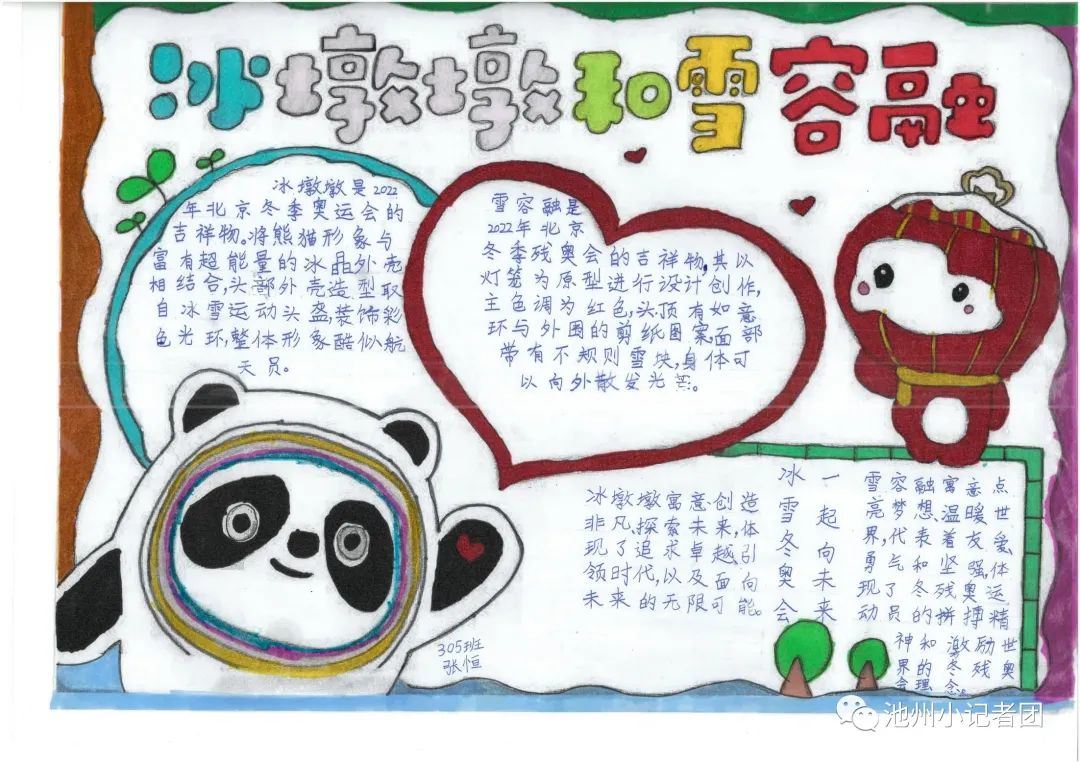 冰墩墩和雪容融
冰墩墩是2022
年北京冬季奥运会的
吉祥物。将熊猫形象与
富有超能量的冰晶外壳
相结合,头部外壳造型取
自冰雪运动头盔,装饰彩
色光环,整体形象酷似航
天员。
雪容融是
2022年北京
冬季残奥会的吉祥物,其以
灯笼为原型进行设计创作,
主色调为红色,头顶有如意
环与外围的剪纸图案,面部
带有不规则雪块,身体可
以向外散发光芒。
冰墩墩寓意创造
非凡、探索未来,体
现了追求卓越、引
领时代,以及面向
未来的无限可能。
冰雪冬奥会
一起向未来
雪容融寓意点
亮梦想、温暖世
界,代表着友爱
勇气和坚强,体
现了冬残奥运
动员的拼搏精
神和激励世
界的冬残奥
会理念。
305班
张恒
池州小记者团